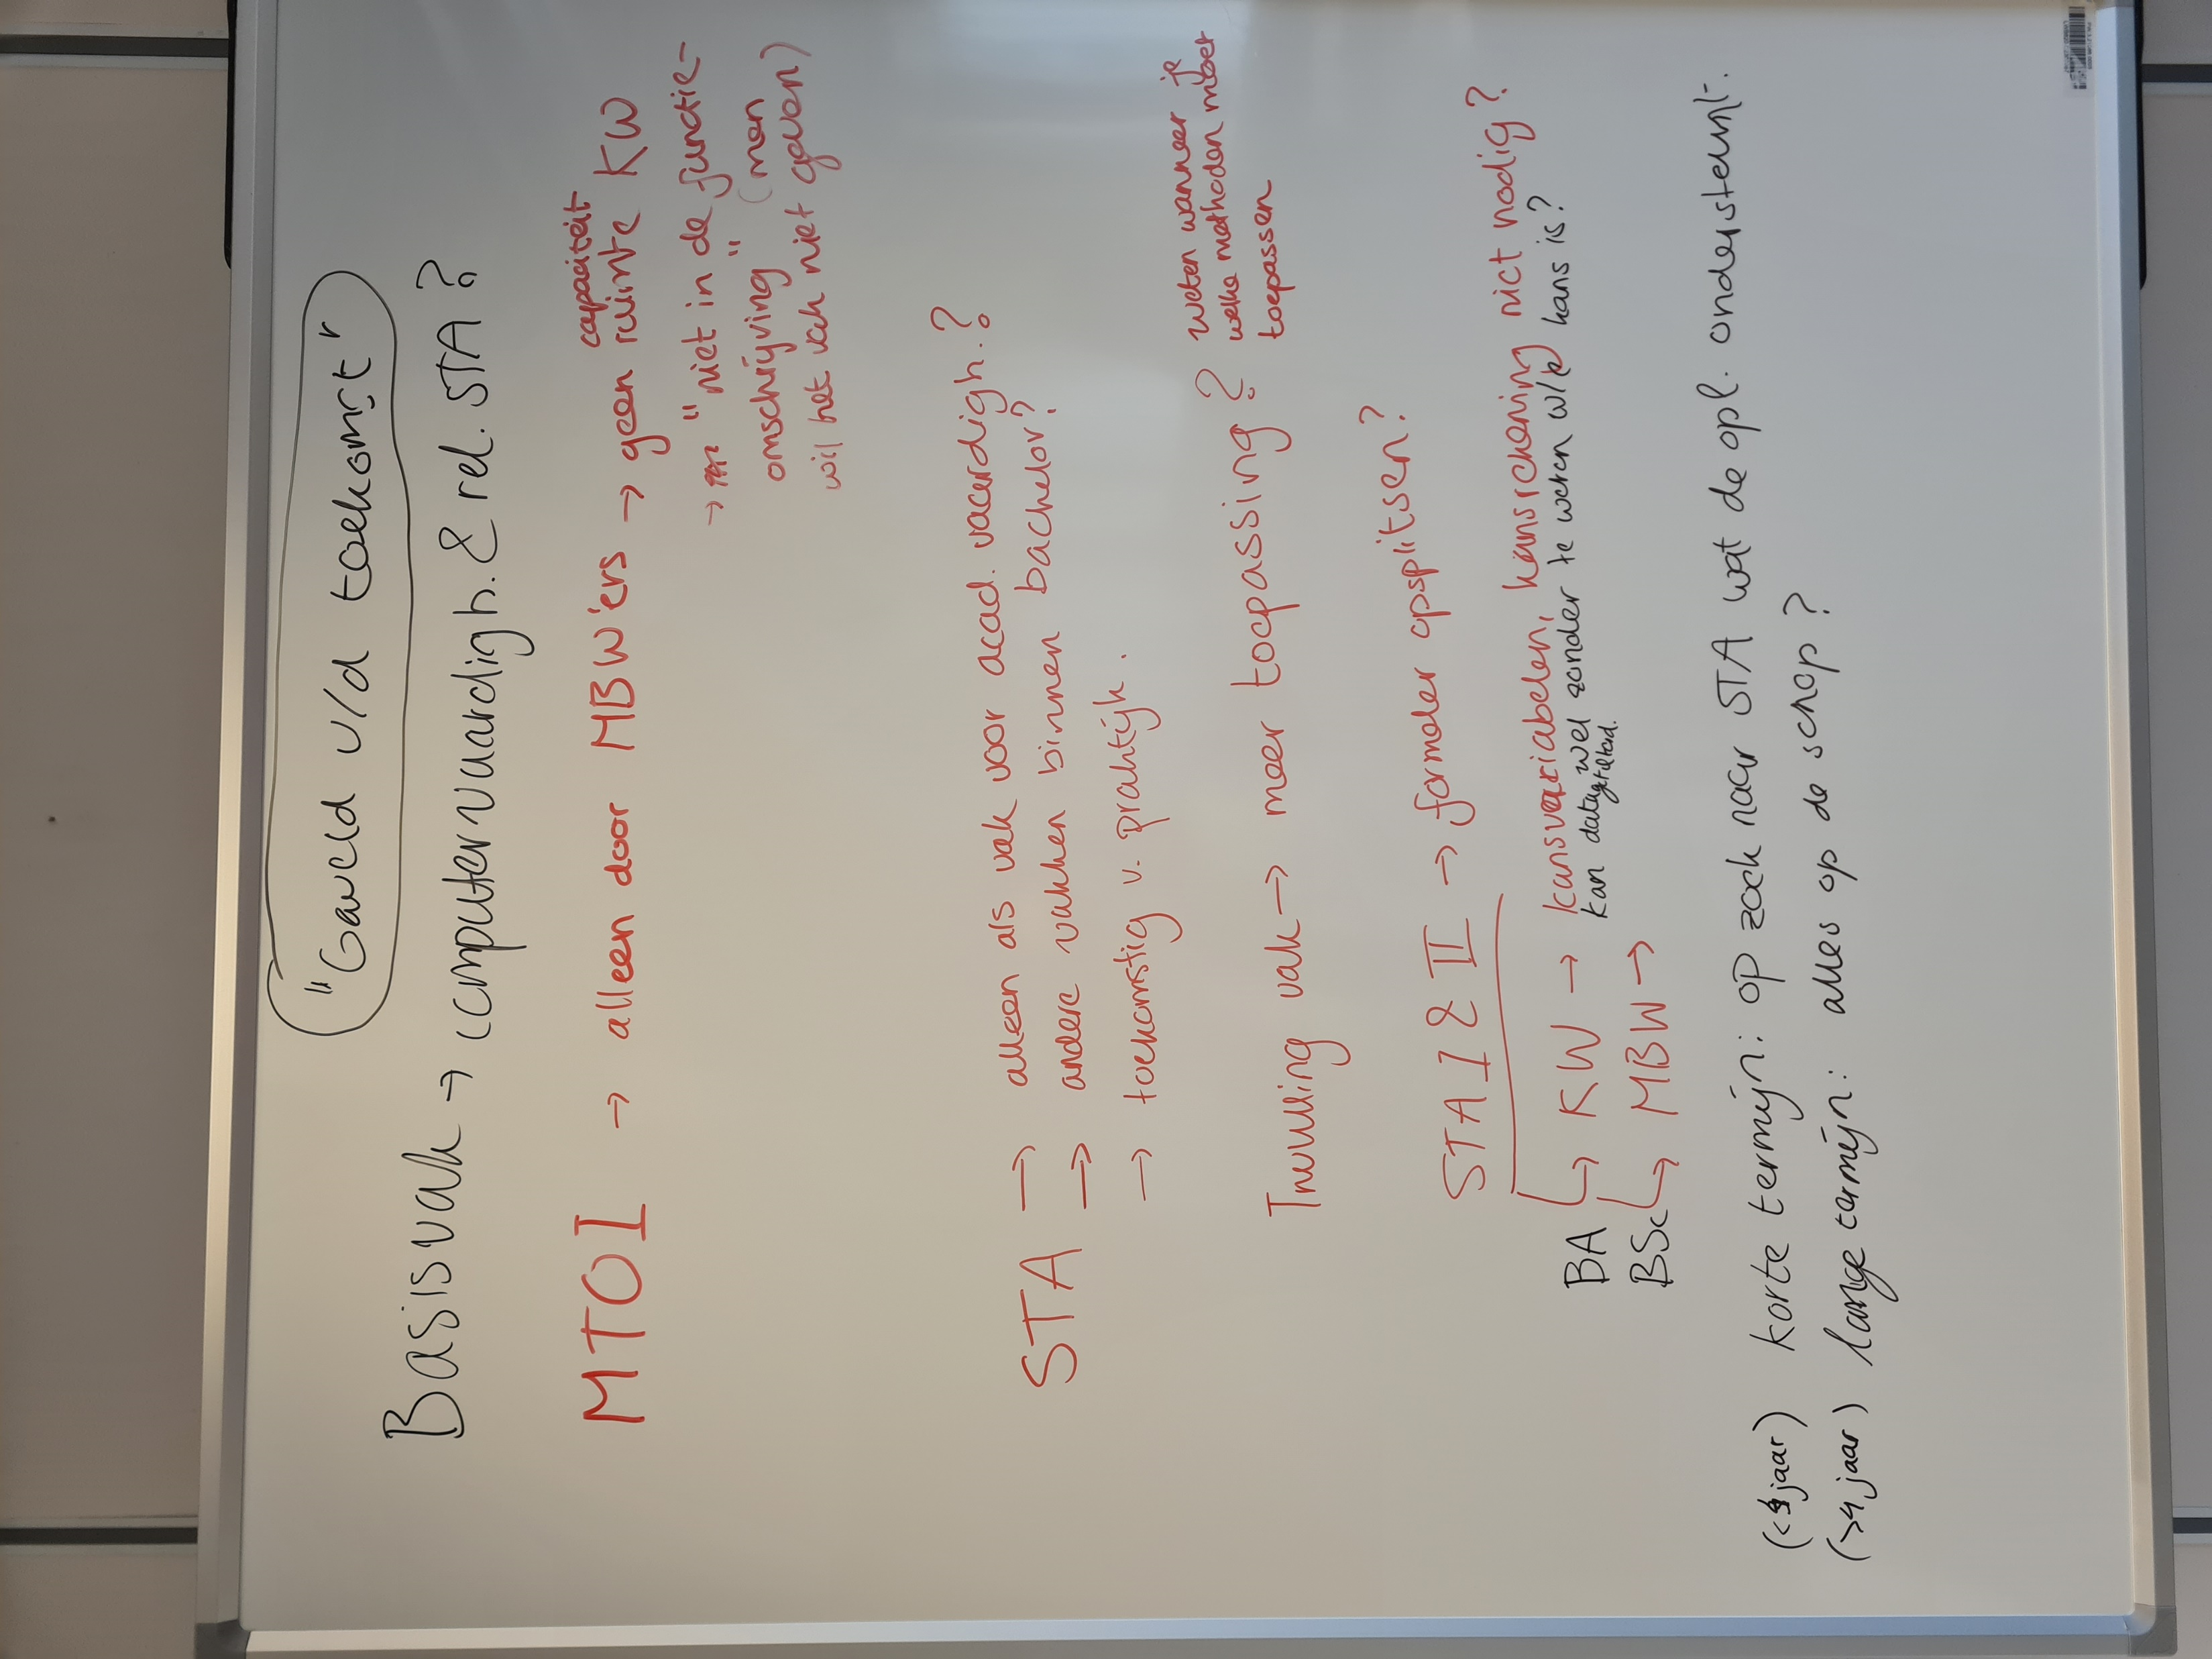 "Gareld v/d toekomst"
Basisvak → computervaardigh. & rel. STA?
MTOI → alleen door MBW'ers → geen ruimte KW
capaciteit
→ "niet in de functie-
omschrijving" (men
wil het vak niet geven)
STA → alleen als vak voor acad. vaardigh.?
→ andere vakken binnen bachelor?
→ toekomstig v. praktijk.
Invulling vak → meer toepassing?
weten wanneer je
welke methoden moet
toepassen
STA I & II → formeler opsplitsen?
BA ↳ KW → kansvariabelen, kansrekening niet nodig?
kan wel zonder te weten wle kans is?
BSc ↳ MBW →
(<4 jaar) korte termijn: op zoek naar STA wat de opl. ondersteunt.
(>4 jaar) lange termijn: alles op de schop?